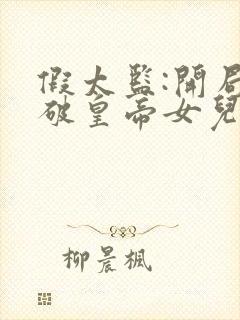 假太監:開局
破皇帝女兒
柳晨楓